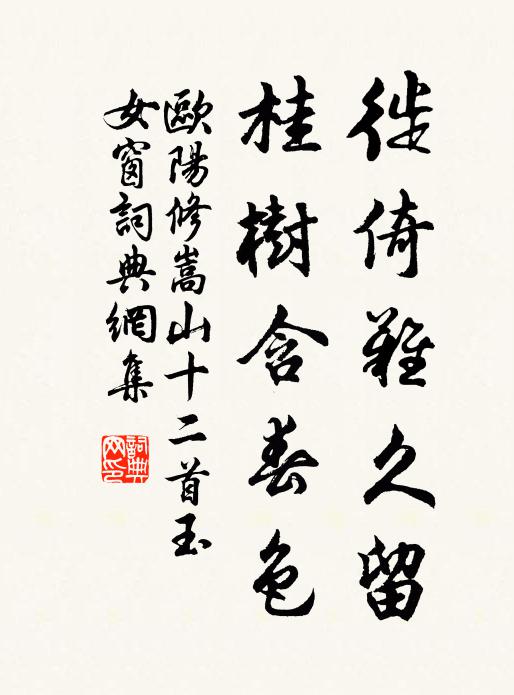 徙倚難久留
桂樹含春色
歐陽修嵩山十二首玉
女窗詞典網集
詞典网印